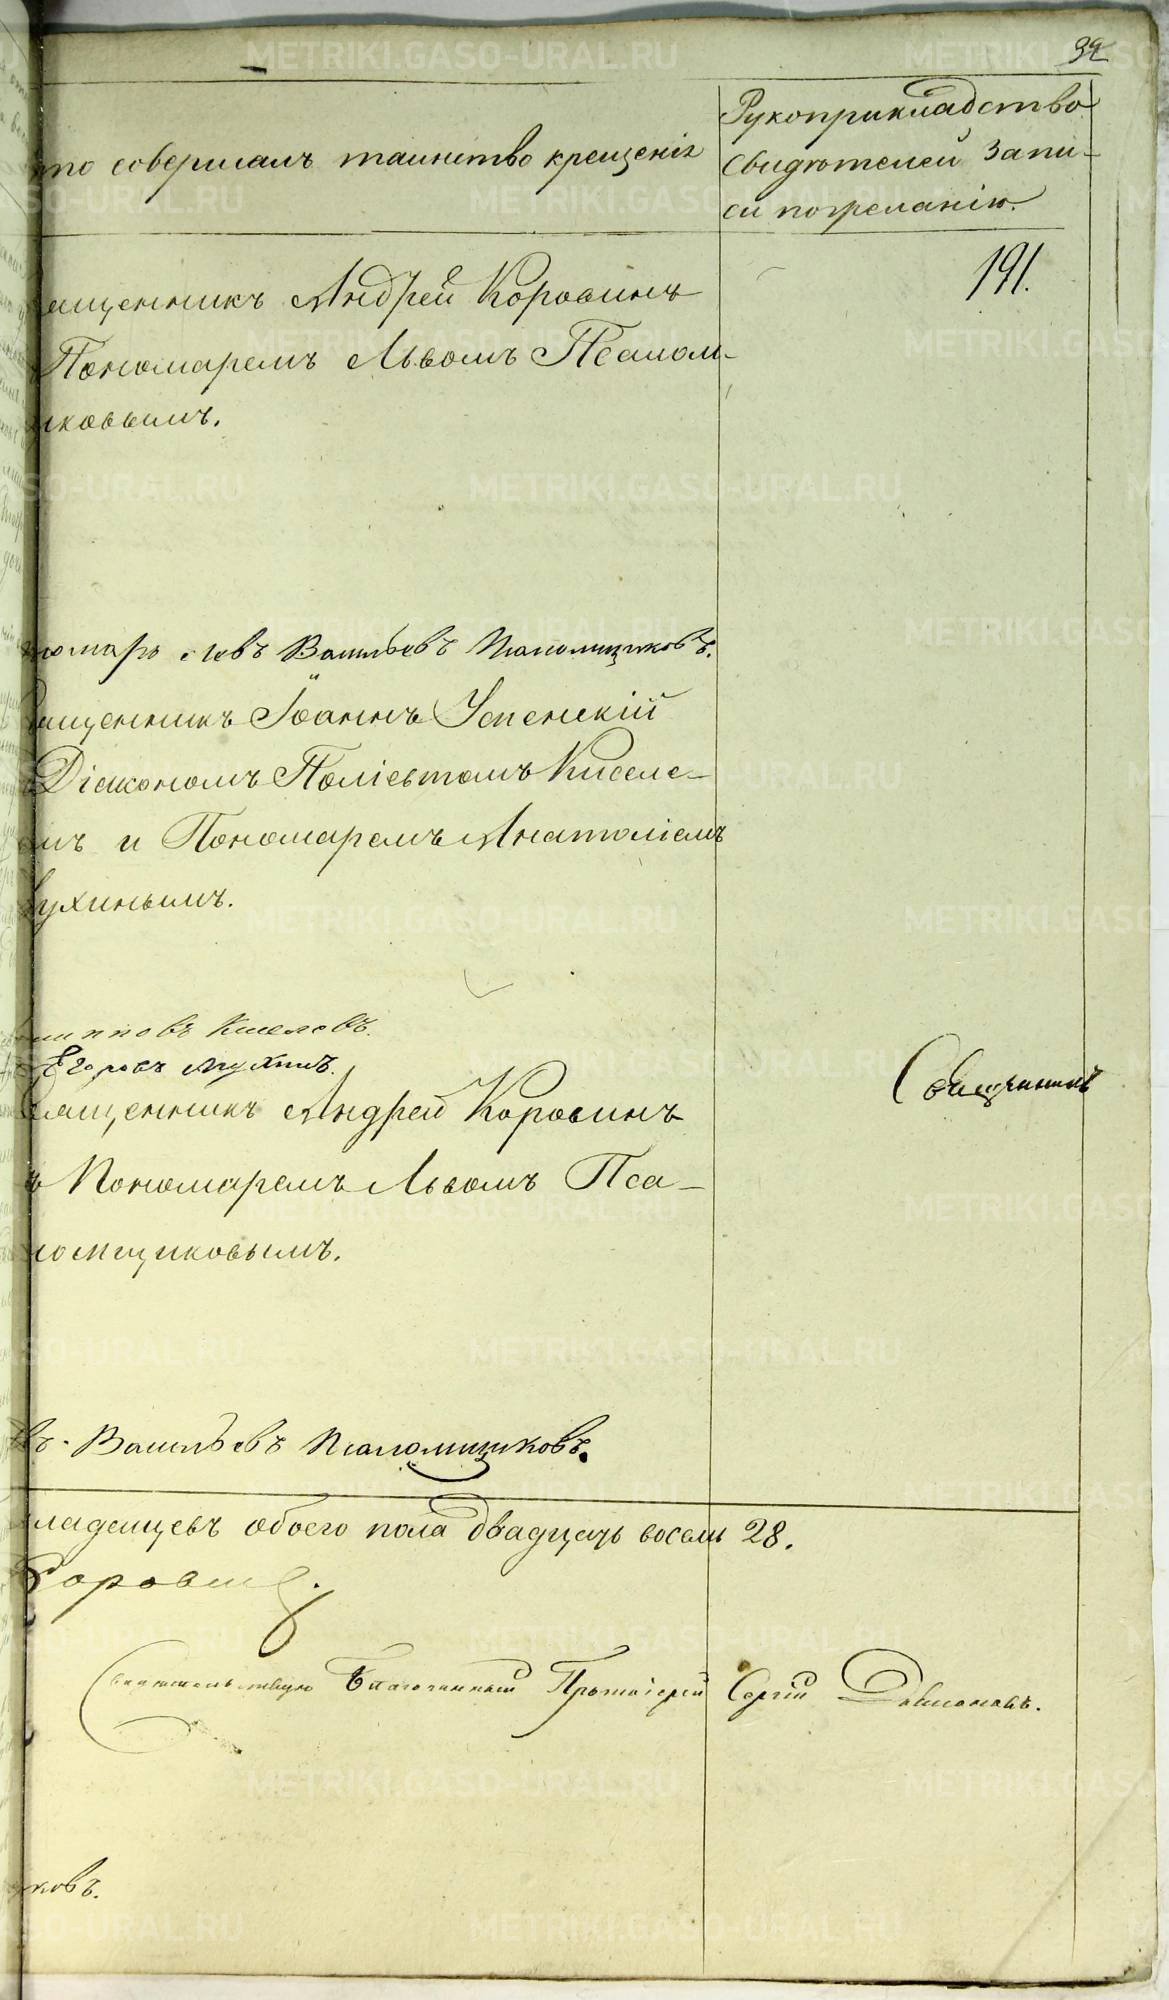 92
кто совершалъ таинство крещенія
Рукоприкладство
свидѣтелей запи-
си по желанію.
191.
ященникъ Андрей Коровинъ
Пономаремъ Львомъ Псалом-
иковымъ.
номарь Левъ Васильевъ Псаломщиковъ.
ященникъ Іоаннъ Успенскій
Діакономъ Поліевтомъ Киселе-
мъ и Пономаремъ Анатоліемъ
ухинымъ.
липповъ Киселевъ.
Егоровъ Мухинъ.
Священникъ
вященникъ Андрей Коровинъ
ъ Пономаремъ Львомъ Пса-
ломщиковымъ.
въ Васильевъ Псаломщиковъ.
младенцевъ обоего пола двадцать восемь 28.
Коровинъ.
Свидѣтельствую Благочинный Протоіерей Сергій
ковъ.